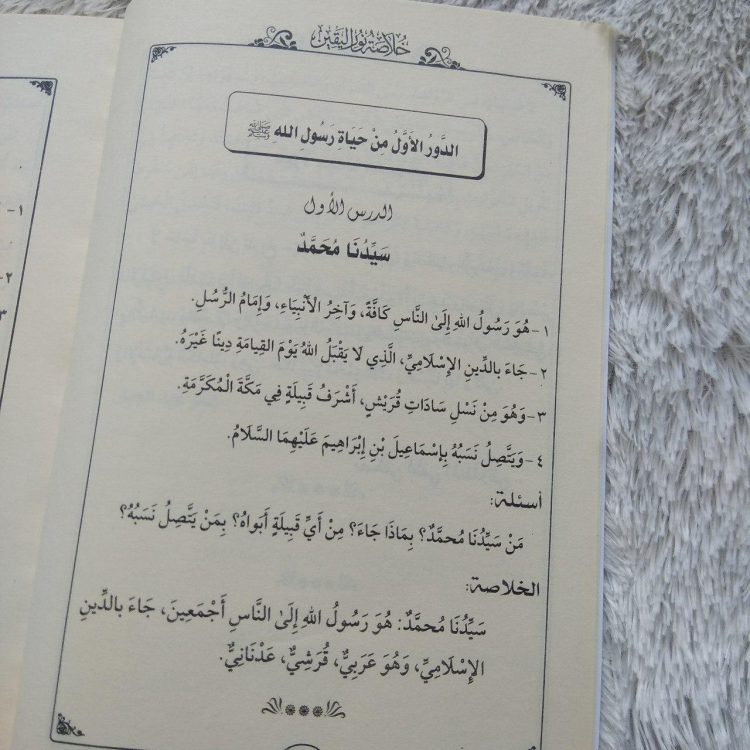 خُلَاصَةُ نُورِ اليَقِيْنِ
الدَّوْرُ الأَوَّلُ مِنْ حَيَاةِ رَسُولِ اللهِ ﷺ
الدرس الأول
سَيِّدُنَا مُحَمَّدٌ
١- هُوَ رَسُولُ اللهِ إِلَىٰ النَّاسِ كَافَّةً، وَآخِرُ الْأَنْبِيَاءِ، وَإِمَامُ الرُّسُلِ.
٢- جَاءَ بِالدِّينِ الإِسْلَامِيِّ، الَّذِي لَا يَقْبَلُ اللهُ يَوْمَ القِيَامَةِ دِينًا غَيْرَهُ.
٣- وَهُوَ مِنْ نَسْلِ سَادَاتِ قُرَيْشٍ، أَشْرَفُ قَبِيلَةٍ فِي مَكَّةَ الْمُكَرَّمَةِ.
٤- وَيَتَّصِلُ نَسَبُهُ بِإِسْمَاعِيلَ بْنِ إِبْرَاهِيمَ عَلَيْهِمَا السَّلَامُ.
أسئلة:
مَنْ سَيِّدُنَا مُحمَّدٌ؟ بِمَاذَا جَاءَ؟ مِنْ أَيِّ قَبِيلَةٍ أَبَوَاهُ؟ بِمَنْ يَتَّصِلُ نَسَبُهُ؟
الخلاصة:
سَيِّدُنَا مُحمَّدٌ: هُوَ رَسُولُ اللهِ إِلَىٰ النَّاسِ أَجْمَعِينَ، جَاءَ بِالدِّينِ
الإِسْلَامِيِّ، وَهُوَ عَرَبِيٌّ، قُرَشِيٌّ، عَدْنَانِيٌّ.
١-
٢-
٣